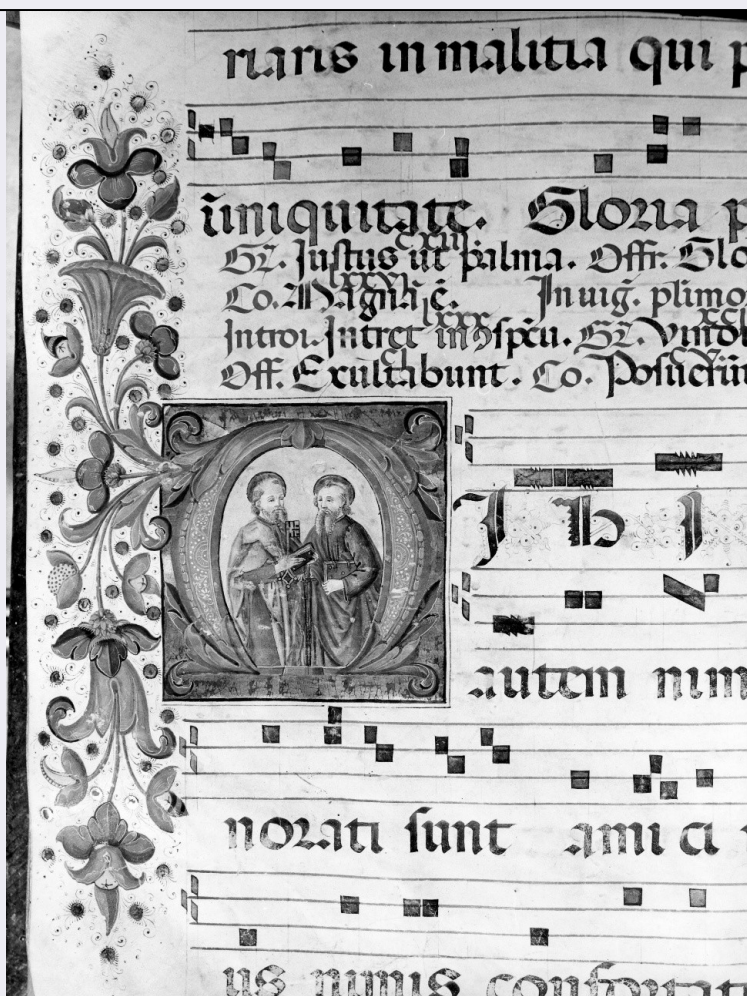 riaris in malitia qui p
ũiniquitate. Gloria p
cxiii
Gr̃. Justus ut palma. Offr. Glo
lxxxvi
Co. Magna ẽ. In uig̃. plimo
lxxx
Introi. Intret in ꝯspc̃u. Gr̃.
cl
Off. Exultabunt. Co. Posuerũ
M I h I
autem nim
norati sunt amici
us nimis confortat